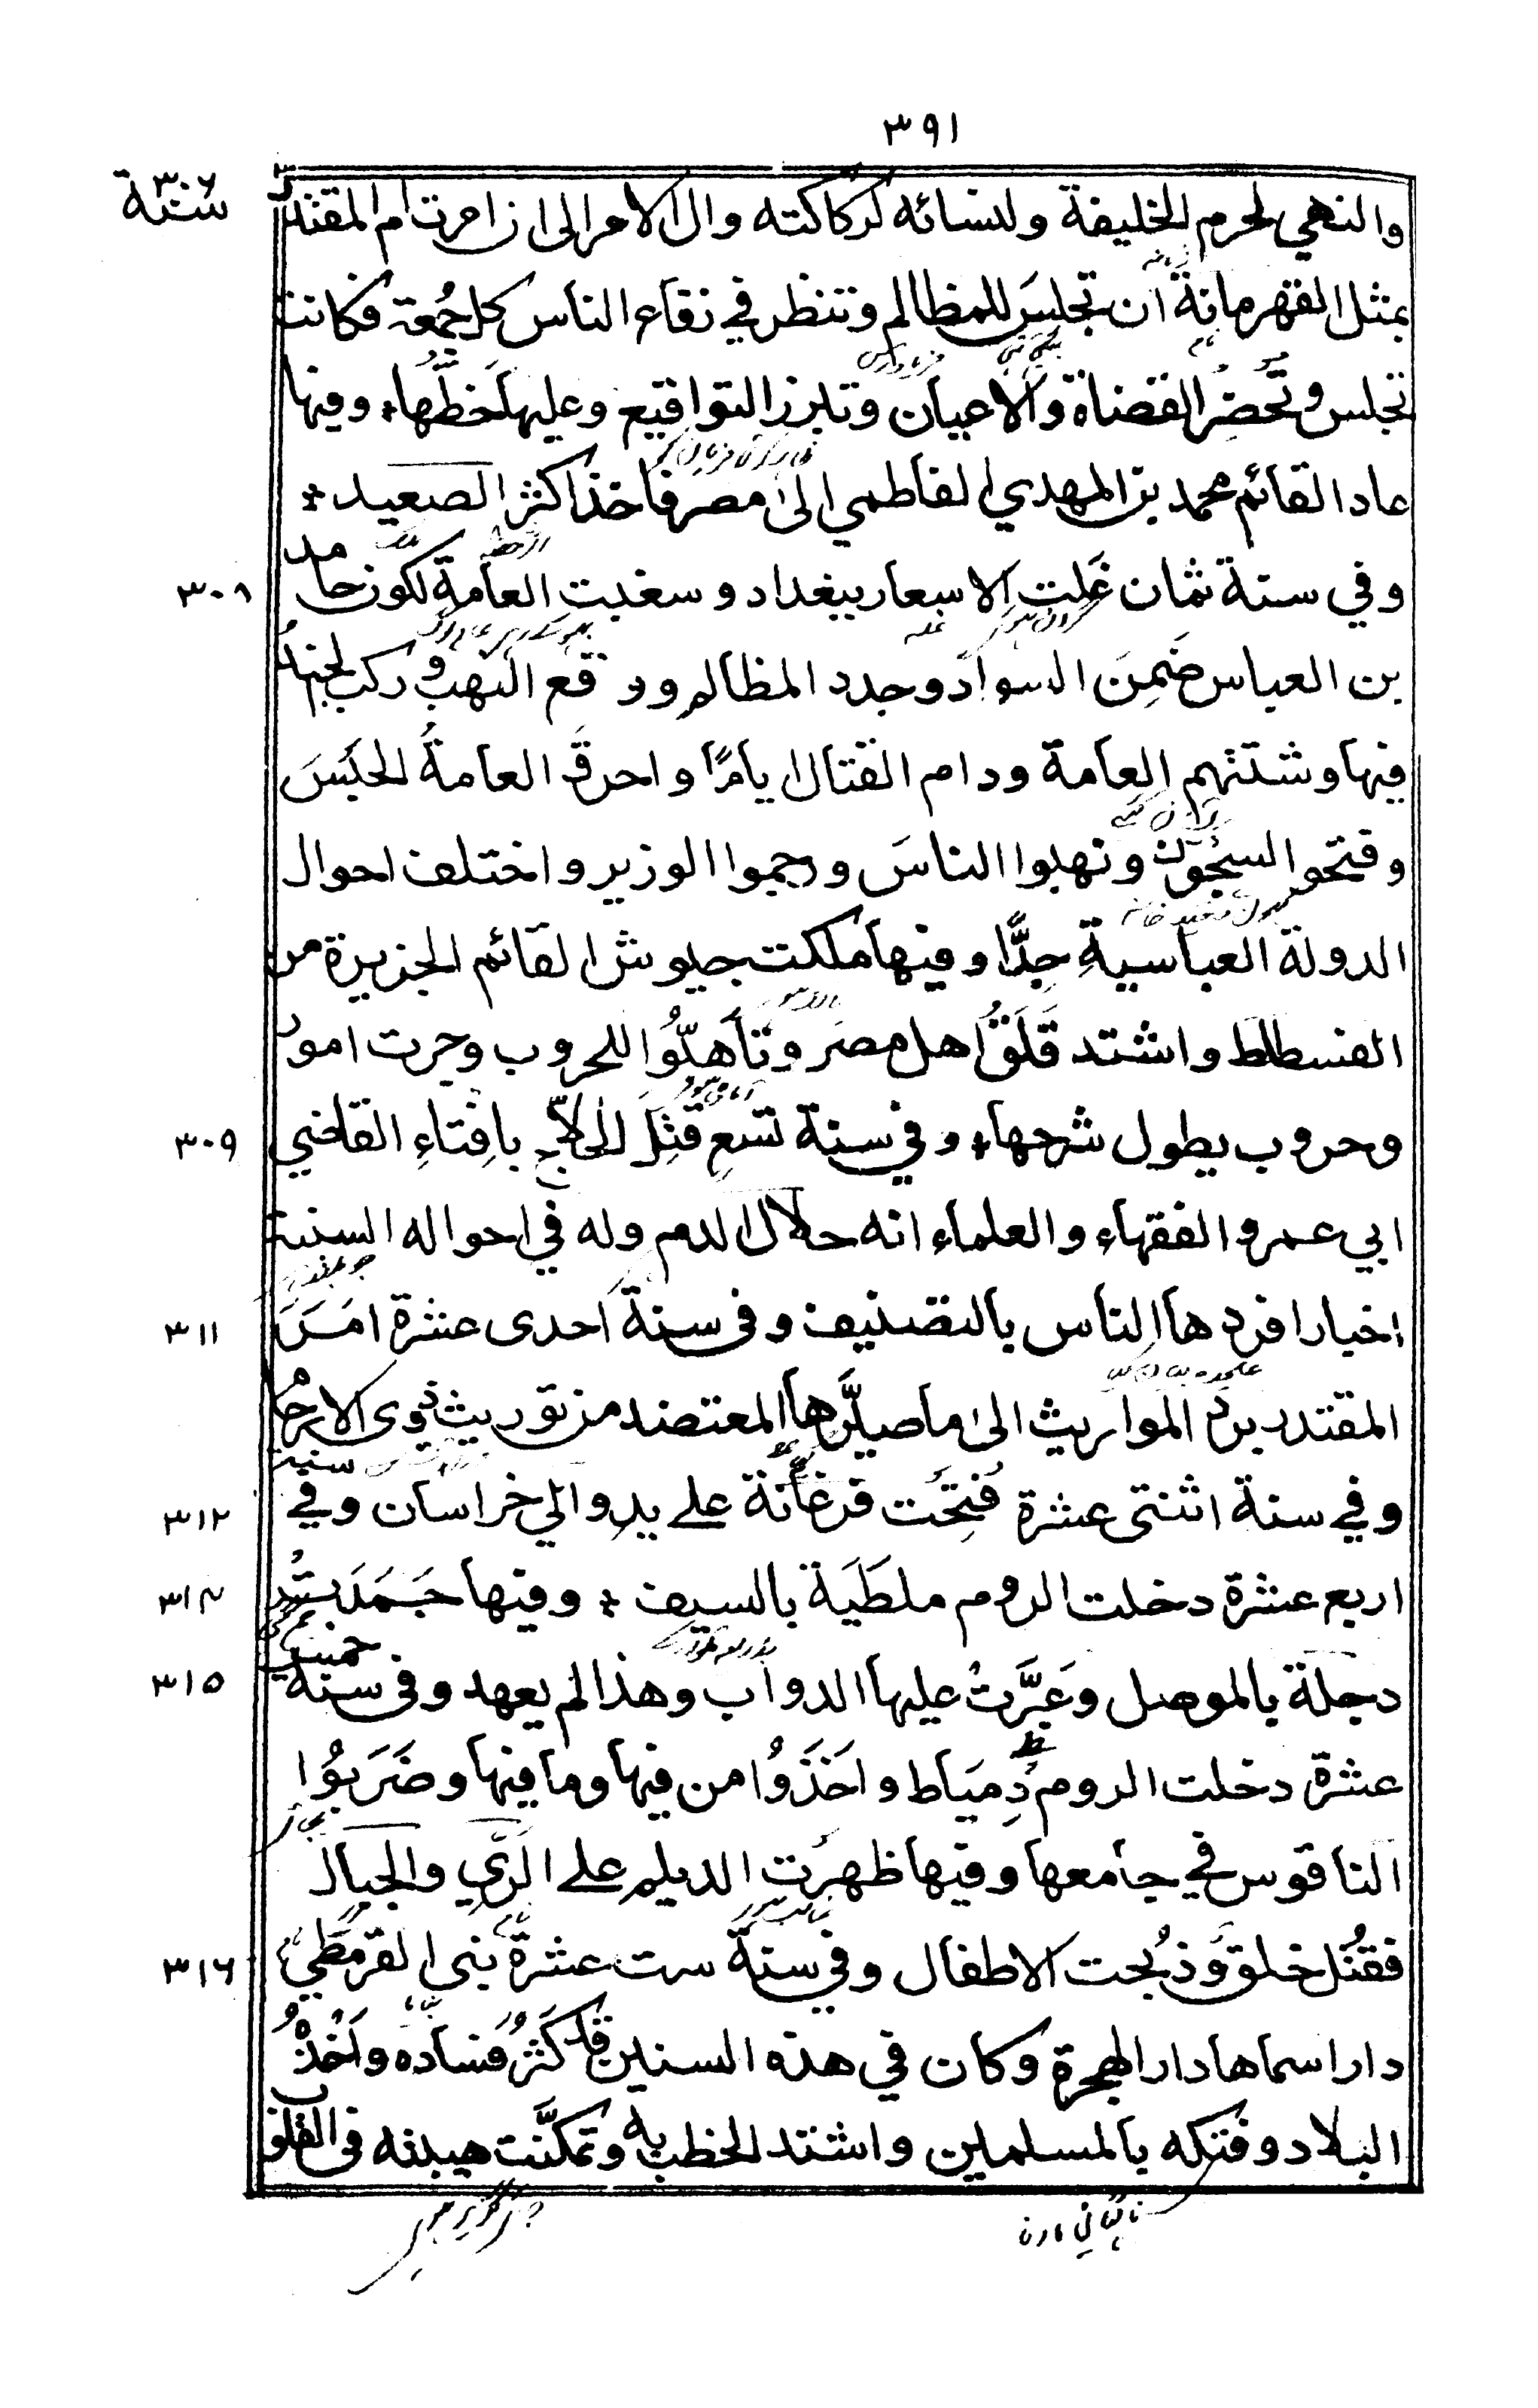 ٣٩١
سنة ٣٠٦
والنهي لحرم الخليفة ولنسائه لركاكته وال الامر الى ان امرت ام المقتدر
بمثل القهرمانة ان تجلسَ للمظالم وتنظر في رقاع الناس كل جُمعة فكانت
تجلس وتُحضِر القضاة والاعيان وتبرز التواقيع وعليها خطُّها، وفيها
عاد القائم محمد بن المهدي الفاطمي الى مصر فاخذ اكثر الصعيد
٣٠٨ وفي سنة ثمان غَلت الاسعار ببغداد وسغبت العامة لكون حامد
بن العباس ضَمِنَ السواد وجدد المظالم ووقع النهب وركب الجندُ
فيها وشتتهم العامة ودام القتال ايامًا واحرقَ العامةُ الحبسَ
وفتحوا السجون ونهبوا الناسَ ورجموا الوزير واختلف احوال
الدولة العباسيةِ جدًّا وفيها ملكت جيوش القائم الجزيرة من
الفسطاط واشتد قَلَقُ اهل مصر وتأهلُّوا للحروب وجرت امور
٣٠٩ وحروب يطول شرحها، وفي سنة تسع قُتِلَ الحلاّج بافتاءِ القاضي
ابي عمر والفقهاء والعلماء انه حلال الدم وله في احواله السنية
٣١١ اخبار افردها الناس بالتصنيف وفى سنة احدى عشرة امَرَ
المقتدر برد المواريث الى ما صيَّرها المعتضد من توريث ذوى الارحام
٣١٢ وفي سنة اثنتى عشرة فُتِحَت فرغانة على يد والي خراسان وفي سنة
٣١٤ اربع عشرة دخلت الروم ملطَيَة بالسيف وفيها جَمَدَت
دجلة بالموصل وعَبَّرتْ عليها الدواب وهذا لم يعهد وفى سنة خمس ٣١٥
عشرة دخلت الروم دِمياط واخَذَوُا من فيها وما فيها وضَرَبوُا
الناقوس في جامعها وفيها ظهرَت الديلم على الرَّي والجبال
٣١٦ فقُتل خلق وذُبحت الاطفال وفي سنة ست عشرة بنى القرمطي
دارا سماها دار الهجرة وكان في هذه السنين قد كَثُر فسَاده واَخْذُهُ
البلاد وفتكه بالمسلمين واشتد الخطب به وتمكنَّت هيبته فى القلوب